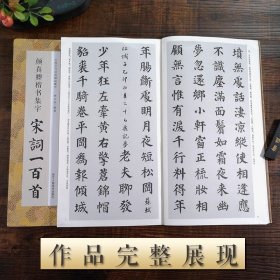 墳無處話淒涼縱使相逢應
不識塵滿面鬢如霜夜來幽
夢忽還鄉小軒窗正梳妝相
顧無言惟有淚千行料得年
年腸斷處明月夜短松岡 蘇軾
老夫聊發
少年狂左牽黃右擎蒼錦帽
貂裘千騎卷平岡為報傾城
颜真卿楷书集字
宋詞一百首
作品完整展现